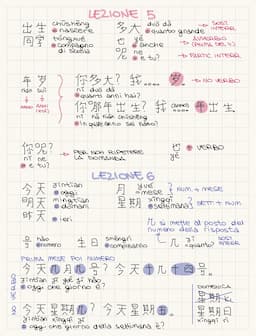 LEZIONE 5
出生 chūshēng • nascere
多大 duō dà • quanto grande → SOST. INTERR.
同学 tóngxué • compagno di scuola
也 yě • anche → AVVERBIO
呢 ne • e tu? → PARTIC. INTERR.
年 岁 你多大? 我....岁 → NO VERBO
nián suì nǐ duō dà
• quanti anni hai?
• ANNO • ANNI
你哪年出生? 我 年出生
nǐ nǎ nián chūshēng
• in quale anno sei nato?
你呢? → PER NON RIPETERE LA DOMANDA
nǐ ne
• e tu?
也 + VERBO
yě
LEZIONE 6
今天 jīntiān • oggi
月 yuè • mese → NUM. + MESE
明天 míngtiān • domani
星期 xīngqī • settimana → SETT. + NUM
昨天 • ieri
几 si mette al posto del numero della risposta
号 hào • numero
生日 shēngrì • compleanno
几 jǐ • quanto
PRIMA MESE POI NUMERO
今天几月几号? 今天十几十四号。
jīntiān jǐ yuè jǐ hào
• oggi che giorno è?
今天星期几? 今天星期五。
jīntiān xīngqī jǐ
• oggi che giorno della settimana è?
NO VERBO
DOMENICA
星期日
星期天
xīngqī tiān